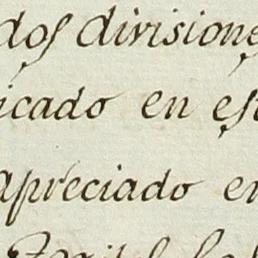 dos divisione
icado en es
apreciado en